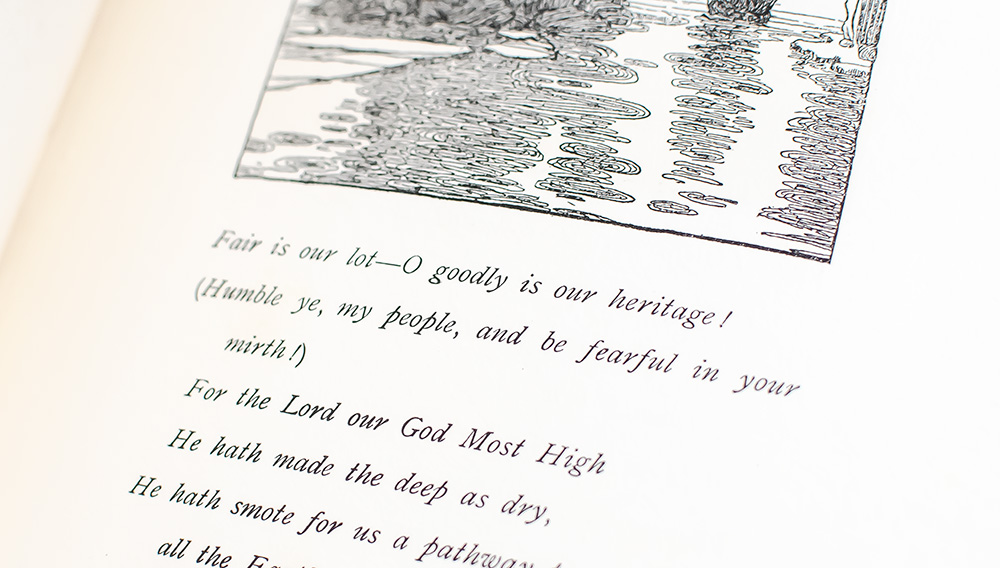 Fair is our lot—O goodly is our heritage!
(Humble ye, my people, and be fearful in your
mirth!)
For the Lord our God Most High
He hath made the deep as dry,
He hath smote for us a pathway
all the